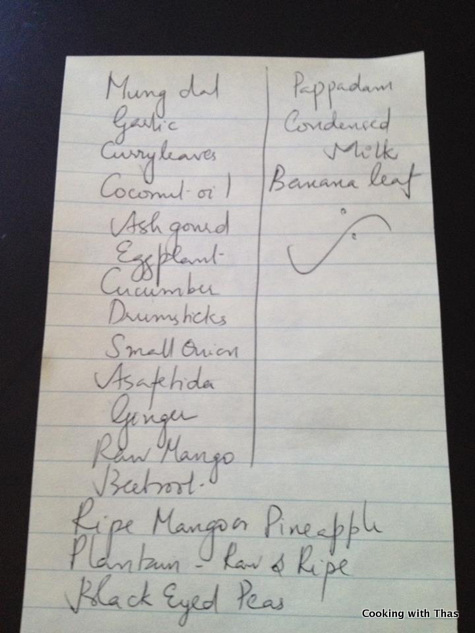 Mung dal
Garlic
Curryleaves
Coconut oil
Ash gourd
Eggplant
Cucumber
Drumsticks
Small Onion
Asafetida
Ginger
Raw Mango
Beetroot.
Ripe Mango or Pineapple
Plantain - Raw & Ripe
Black Eyed Peas
Pappadam
Condensed
Milk
Banana leaf
Cooking with Thas